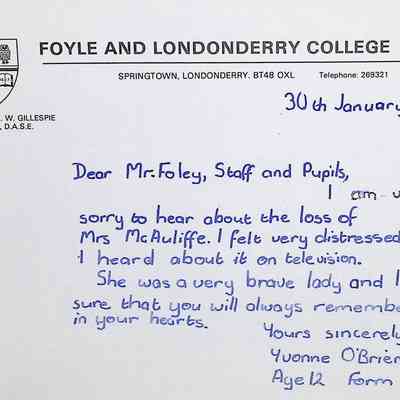 FOYLE AND LONDONDERRY COLLEGE
SPRINGTOWN, LONDONDERRY. BT48 OXL Telephone: 269321
W. GILLESPIE
D.A.S.E.
30th January
Dear Mr. Foley, Staff and Pupils,
I am
sorry to hear about the loss of
Mrs McAuliffe. I felt very distressed
I heard about it on television.
She was a very brave lady and I
sure that you will always remembe
in your hearts.
Yours sincerely
Yvonne O'Brien
Age 12 Form